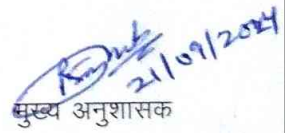 21/09/2024
मुख्य अनुशासक